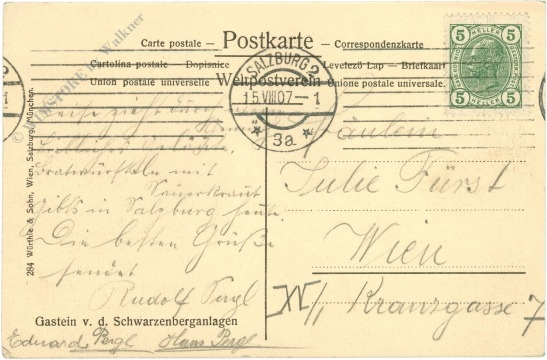 Carte postale — Postkarte — Correspondenzkarte
Cartolina postale — Dopisnice Levelező Lap — Briefkaart
Union postale universelle Weltpostverein Unione postale universale.
5 HELLER 5
5 HELLER 5
SALZBURG 2
15.VIII.07 - 1
* 3a *
Leise zieht durch
Bratwürsteln mit
Sauerkraut
gibts in Salzburg heute
Die besten Grüße
sendet
Rudolf Pergl
Eduard Pergl Hans Pergl
Fräulein
Julie Fürst
Wien
IV/1 Kransgasse 7
Gastein v. d. Schwarzenberganlagen
284 Würthle & Sohn, Wien, Salzburg, München.
Walkner